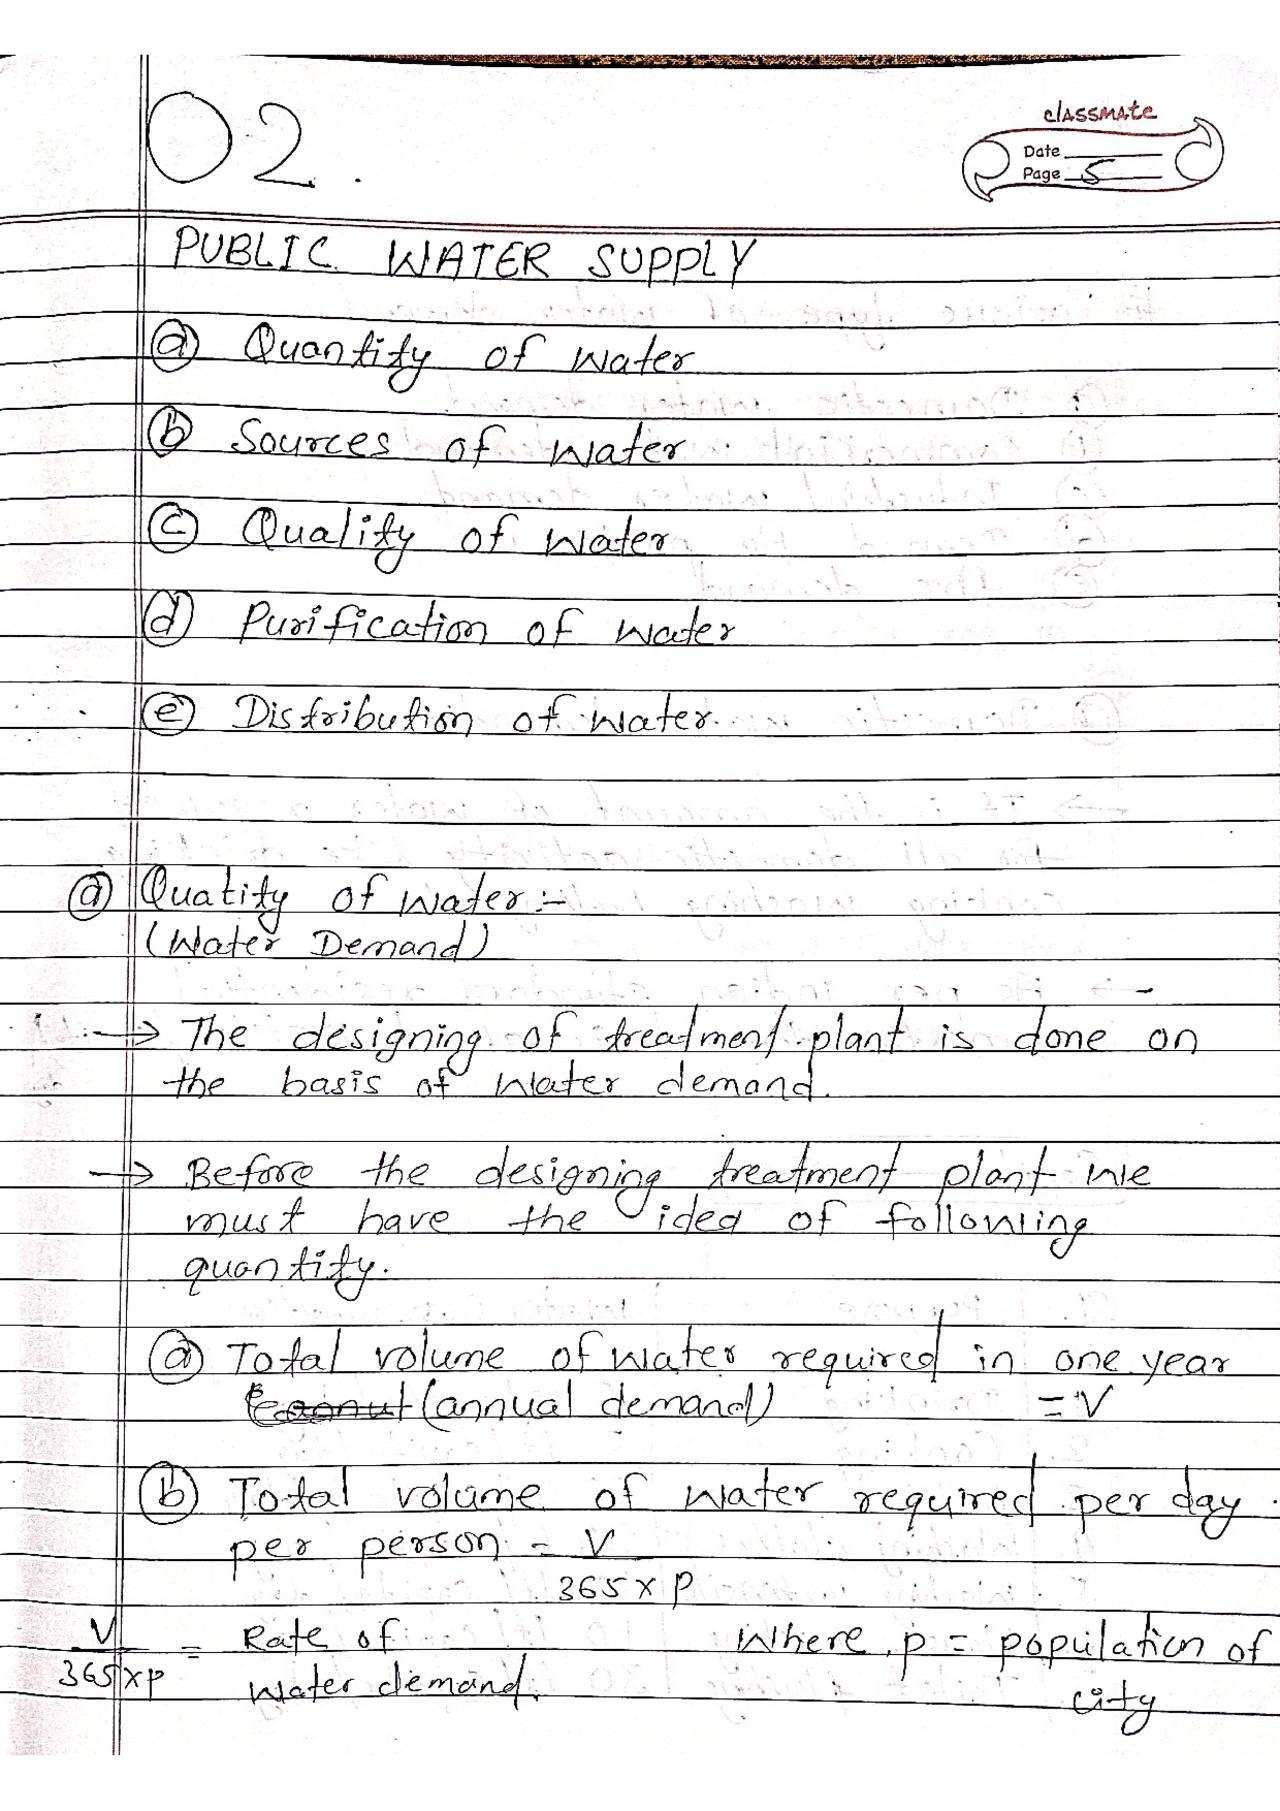 02.
classmate
Date
Page 5
PUBLIC WATER SUPPLY
(a) Quantity of water
(b) Sources of water
(c) Quality of water
(d) Purification of water
(e) Distribution of water.
(a) Quatity of water :-
(Water Demand)
→ The designing of treatment plant is done on
the basis of water demand.
→ Before the designing treatment plant we
must have the idea of following
quantity.
(a) Total volume of water required in one year
(annual demand) = V
(b) Total volume of water required per day
per person = V
365 x p
V = Rate of Where, p = population of
365 x p water demand. city